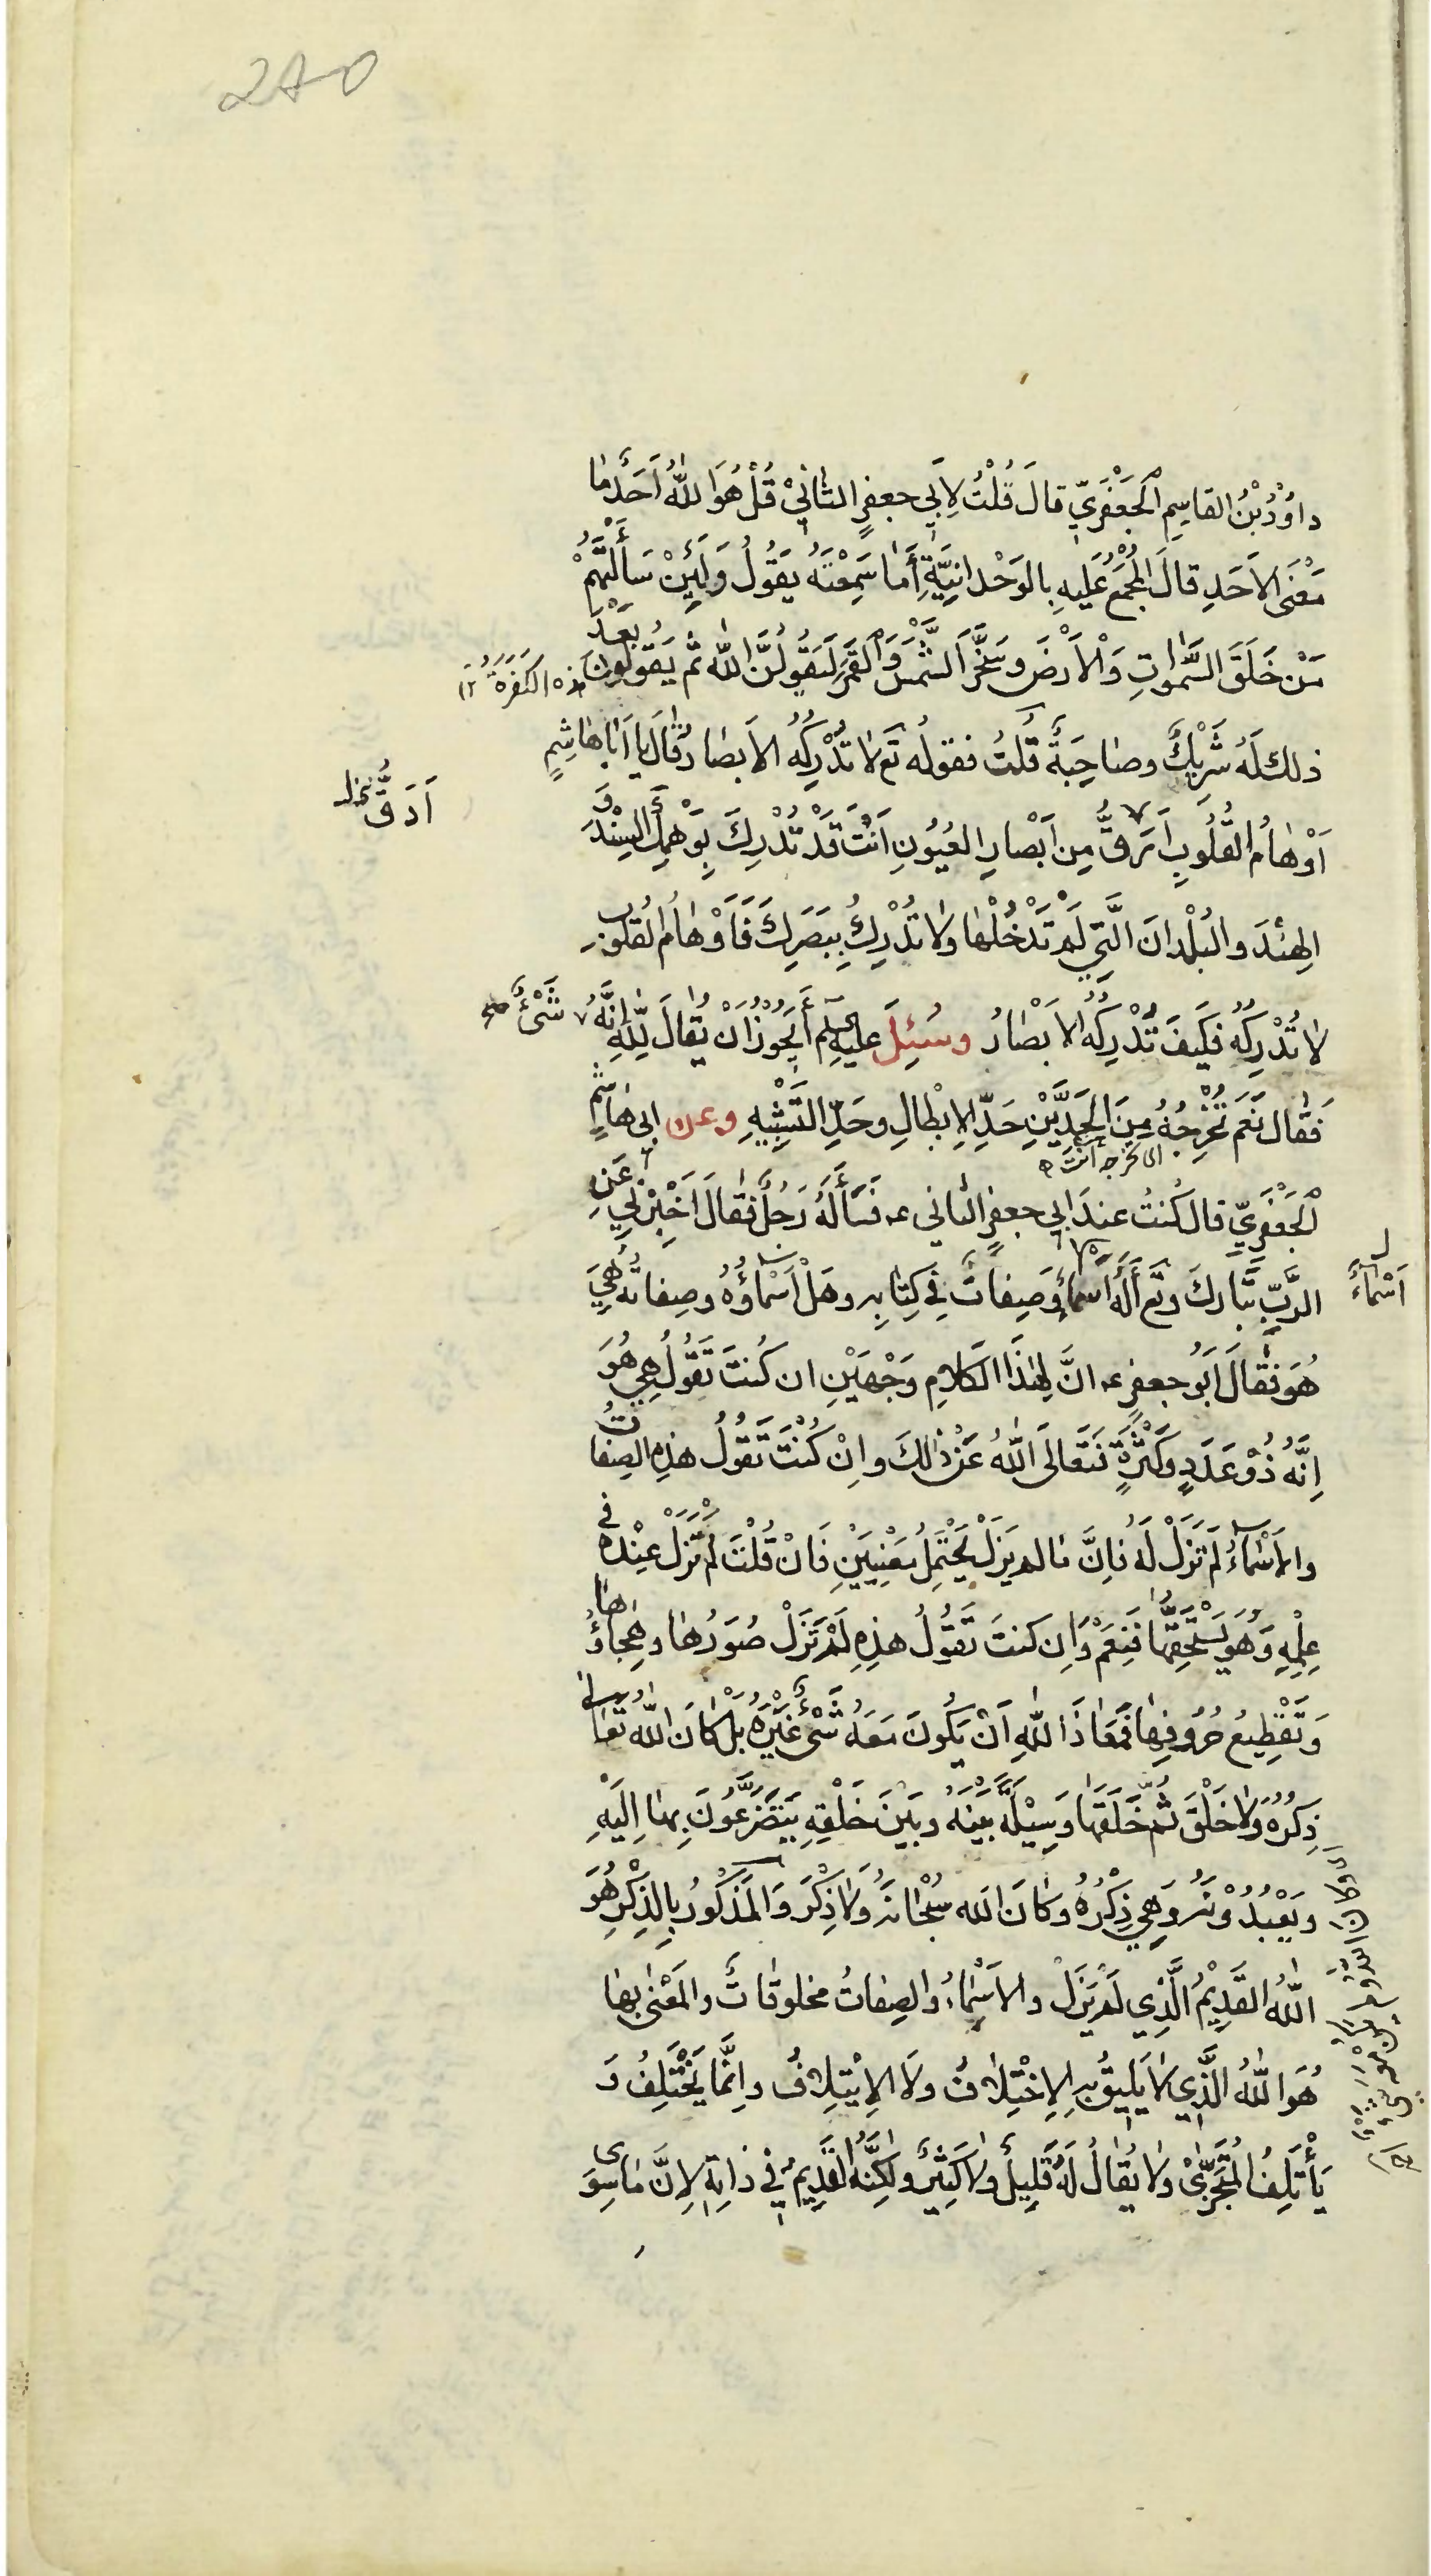 240
داوُدُ بْنُ القاسِمِ الْجَعْفَرِيّ قالَ قُلْتُ لِاَبي جعفرٍ الثّانيْ قُلْ هُوَ اللّٰهُ اَحَدٌ ما
مَعْنَى الاَحَدِ قالَ المُجْمَعُ عَلَيهِ بِالوَحْدانِيَّةِ أَما سَمِعْتَهُ يَقُولُ وَلَئِنْ سَأَلْتَهُمْ
مَنْ خَلَقَ السَّمٰواتِ وَالْاَرْضَ وسَخَّرَ الشَّمْسَ وَالْقَمَرَ لَيَقُولُنَّ اللّٰه ثُم يَقولون بَعْدَ
الكَفَرَةُ ١٢
ذلك لَهُ شَرِيْكٌ وصاحِبَةٌ قُلتُ فقولُه تع لا تُدْرِكُهُ الاَبصارُ قالَ يا اَبا هاشِمٍ
اَوْهامُ القُلُوبِ اَرَقُّ مِن اَبْصارِ العُيُونِ اَنْتَ قَدْ تُدْرِكَ بِوَهْمِكَ السِنْدَ وَ
اَدَقُّ خل
الهِنْدَ والبُلْدانَ الَّتِي لَمْ تَدْخُلْها ولا تُدْرِكُ بِبَصَرِكَ فَاَوْهامُ القُلوبِ
لا تُدْرِكُهُ فكَيفَ تُدْرِكُهُ الاَبْصارُ وسُئِلَ عليه السلم أَيَجُوْزُ اَنْ يُقالَ لِلّٰهِ اِنَّهُ شَىْءٌ صح
فَقال نَعَم تُخْرِجُهُ مِنَ الحَدَّيْنِ حَدِّ الاِبْطالِ وحَدِّ التَشْبِيْهِ وعن ابى هاشمٍ
اى تخرجه انت
الْجَعْفَرِيّ قال كُنتُ عندَ ابي جعفرٍ الثاني ع فَسَأَلَهُ رَجُلٌ فقالَ اَخْبِرْنِي عَنِ
الرَّبِّ تَبارَكَ وتع أَلَهُ اَسْماءٌ وَصِفاتٌ في كِتابِه وهَلْ اَسْماؤُهُ وصِفاتُهُ هِيَ
اَسْماءٌ
هُوَ فقالَ اَبُو جعفرٍ ع انَّ لِهٰذَا الكَلامِ وَجْهَيْنِ ان كُنتَ تَقُولُ هِي هُوَ
اِنَّهُ ذُوْ عَدَدٍ وكَثْرَةٍ فَتَعَالَى اللّٰهُ عَنْ ذٰلكَ واِنْ كُنْتَ تَقُولُ هذِهِ الصِفاتُ
والاَسْماءُ لَمْ تَزَلْ لَهُ فَاِنَّ ما لم يَزَلْ يَحْتَمِلُ مَعْنَيَيْنِ فَانْ قُلْتَ لَمْ تَزَلْ عِنْدَه في
عِلْمِهِ وَهُوَ يَسْتَحِقُّها فَنَعَمْ وَاِن كنتَ تَقُولُ هذِهِ لَمْ تَزَلْ صُوَرُها وهِجاؤُها
وَتَقْطِيعُ حُرُوفِها فَمَعاذَ اللّٰهِ اَنْ يَكُونَ مَعَهُ شَىْءٌ غَيْرُهُ بَلْ كانَ اللّٰه تعالى
ذِكْرُهُ وَلا خَلْقَ ثُمَّ خَلَقَها وَسِيْلَةً بَيْنَهُ وبَيْنَ خَلْقِهِ يَتَضَرَّعُونَ بِها اِلَيْهِ
ويَعْبُدُوْنَهُ وهِي ذِكْرُهُ وكانَ الله سُبْحانَهُ وَلا ذِكْرَ وَالمَذكُورُ بِالذِكْرِ هُوَ
اللّٰهُ القَدِيْمُ الَّذِي لَم يَزَلْ والاَسْماءُ والصِفاتُ مخلوقاتٌ والمَعْنى بِها
هُوَ اللّٰهُ الَّذِي لا يَلِيقُ بِهِ الاِخْتِلافُ وَلَا الاِيْتِلافُ وانَّما يَخْتَلِفُ وَ
يَأْتَلِفُ المُتَجَزِّىْ ولا يُقالُ لَهُ قَلِيلٌ ولا كَثِيْرٌ ولكِنَّهُ القَدِيمُ في ذاتِه لاِنَّ ما سِوَى